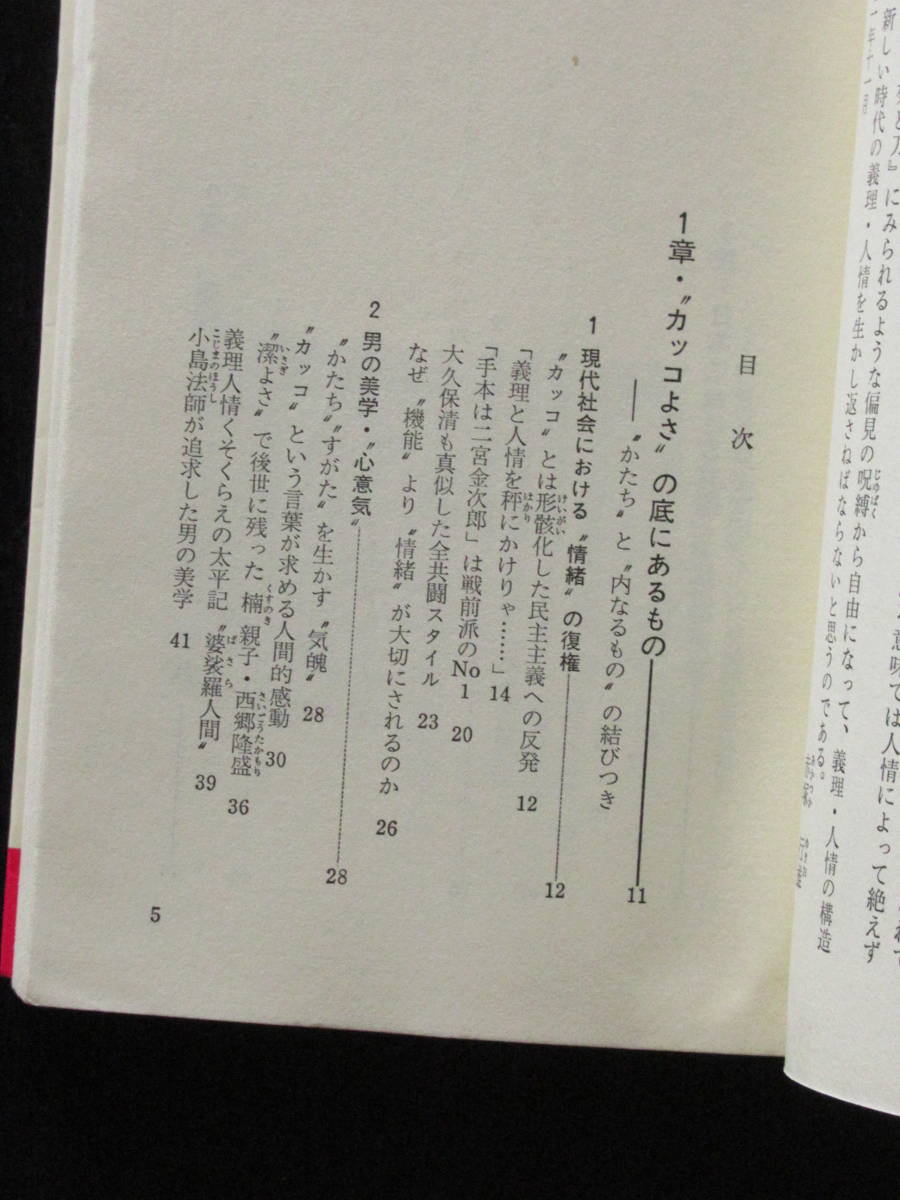 新しい時代の義理・人情を生かし返さねばならないと思うのである。
にみられるような偏見の呪縛から自由になって、義理・人情の構造
意味では人情によって絶えず
目次
1章・〝カッコよさ〟の底にあるもの 11
――〝かたち〟と〝内なるもの〟の結びつき
1 現代社会における〝情緒〟の復権 12
〝カッコ〟とは形骸化した民主主義への反発 12
「義理と人情を秤にかけりゃ……」 14
「手本は二宮金次郎」は戦前派のNo1 20
大久保清も真似した全共闘スタイル 23
なぜ〝機能〟より〝情緒〟が大切にされるのか 26
2 男の美学・〝心意気〟 28
〝かたち〟〝すがた〟を生かす〝気魄〟 28
〝カッコ〟という言葉が求める人間的感動 30
〝潔よさ〟で後世に残った楠親子・西郷隆盛 36
義理人情くそくらえの太平記〝婆裟羅人間〟 39
小島法師が追求した男の美学 41
5